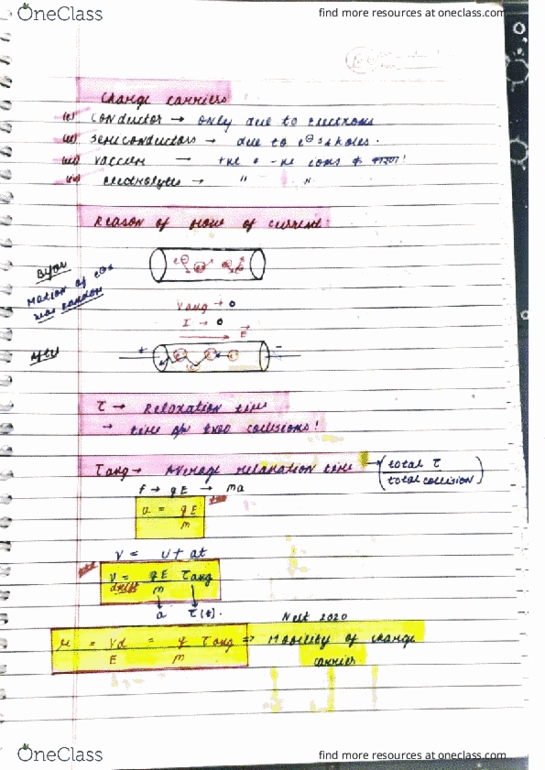 OneClass
find more resources at oneclass.com
Charge carriers
(i) Conductor → only due to electrons
(ii) Semiconductors → due to e⊖s & holes.
(iii) Vaccum → +ve & -ve ions के कारण!
(iv) electrolytes → " "
Reason of flow of current:
Before
Motion of e⊖s
was random
Vavg → 0
I → 0
E
After
+ -
τ → Relaxation time
→ time b/w two collisions!
τavg → Average relaxation time → (total τ / total collision)
F → qE → ma
a = qE/m
V = u + at
V drift = qE/m τavg
a τ(t).
Neet 2020
μ = Vd/E = q/m τavg ⇒ Mobility of charge
carrier
OneClass
find more resources at oneclass.com